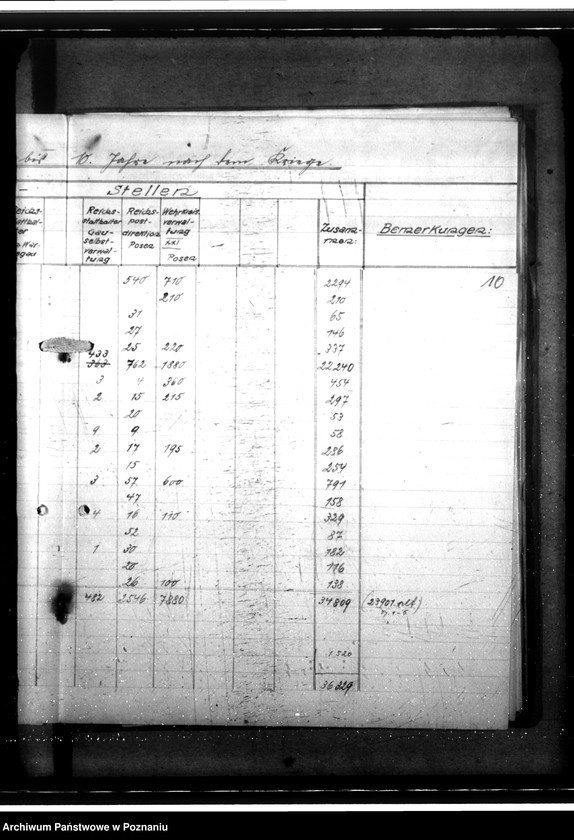 bis 10. Jahre nach dem Kriege.
Stellen
Reichs- Reichs- Wehrkreis
statthalter post- verwal-
Gau- direktion tung
selbst- Posen XXI
verwal- Posen
tung
Zusam-
men:
Bemerkungen:
540 710 2294 10
210 210
31 65
27 146
25 220 337
433
363 762 1880 22240
3 4 360 454
2 15 215 297
20 53
9 9 58
2 17 195 286
15 254
3 57 600 791
47 158
4 16 110 329
52 87
1 30 182
20 116
26 100 138
482 2546 7880 34809 (27901 alt)
1520
36329
Archiwum Państwowe w Poznaniu